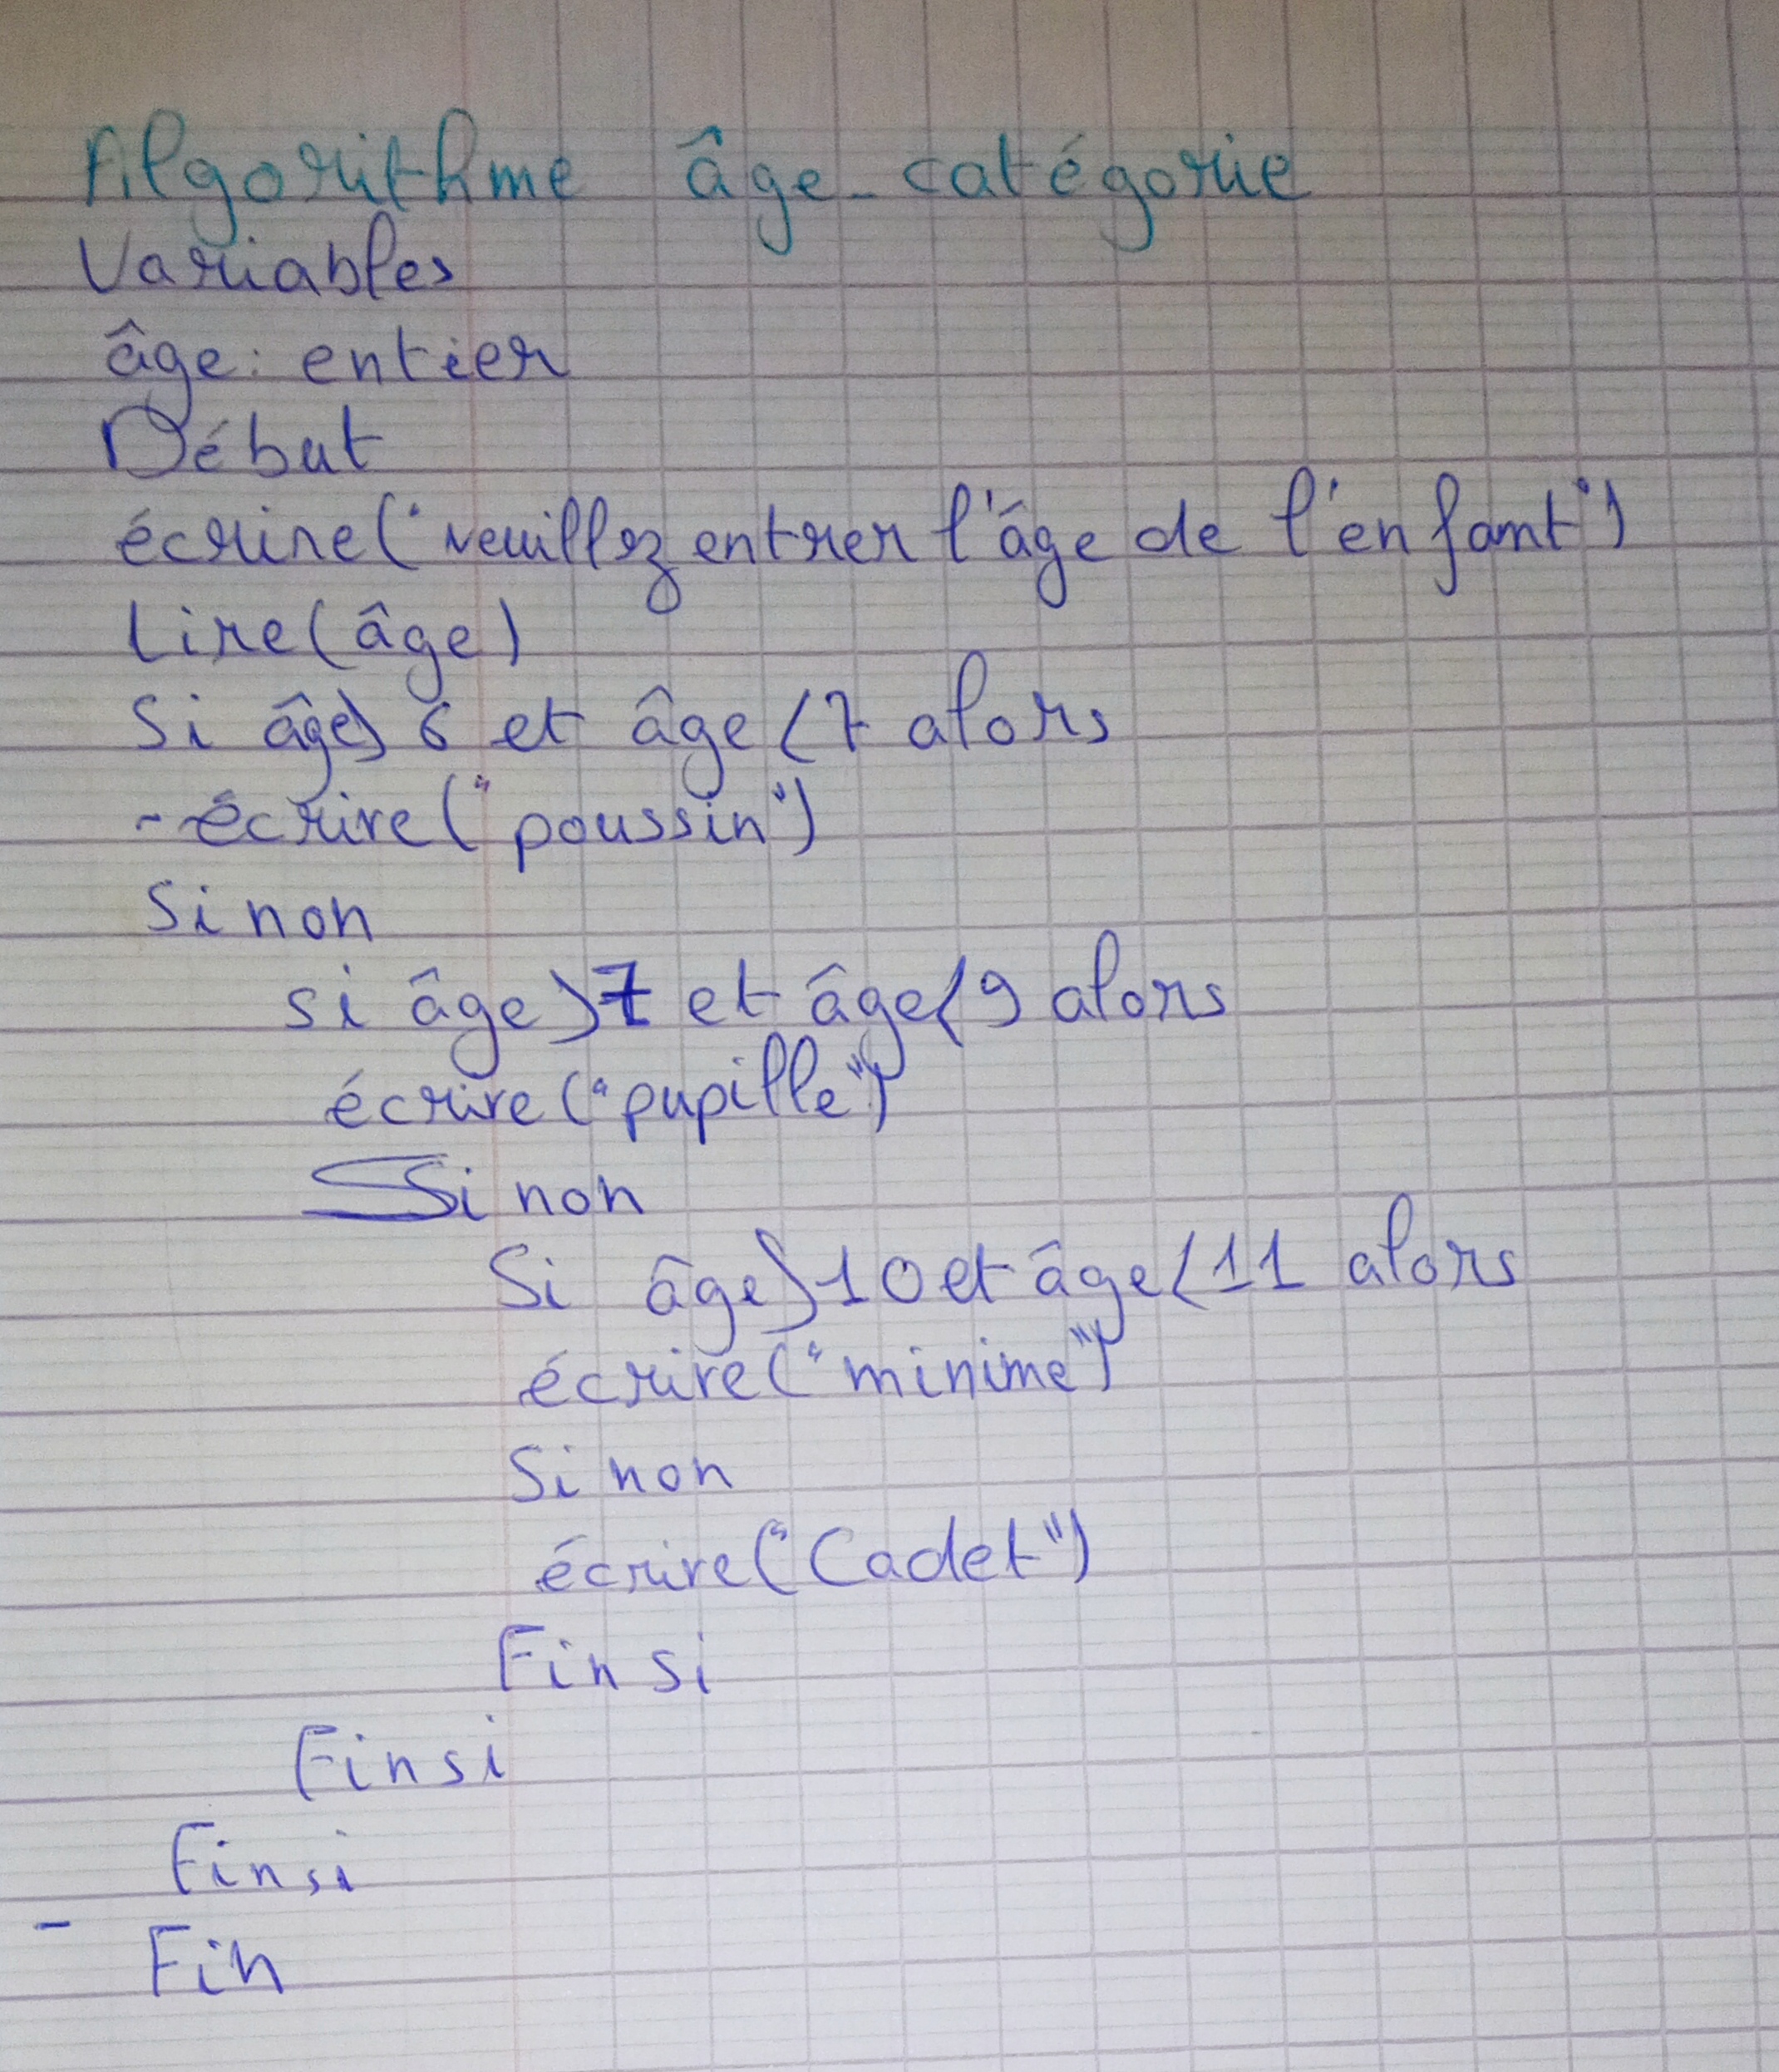 Algorithme âge_catégorie
Variables
âge: entier
Début
écrire("veuillez entrer l'âge de l'enfant")
Lire(âge)
Si âge> 6 et âge <7 alors
-écrire("poussin")
Sinon
si âge >7 et âge<9 alors
écrire("pupille")
Sinon
Si âge>10 et âge<11 alors
écrire("minime")
Sinon
écrire("Cadet")
Finsi
Finsi
Finsi
- Fin